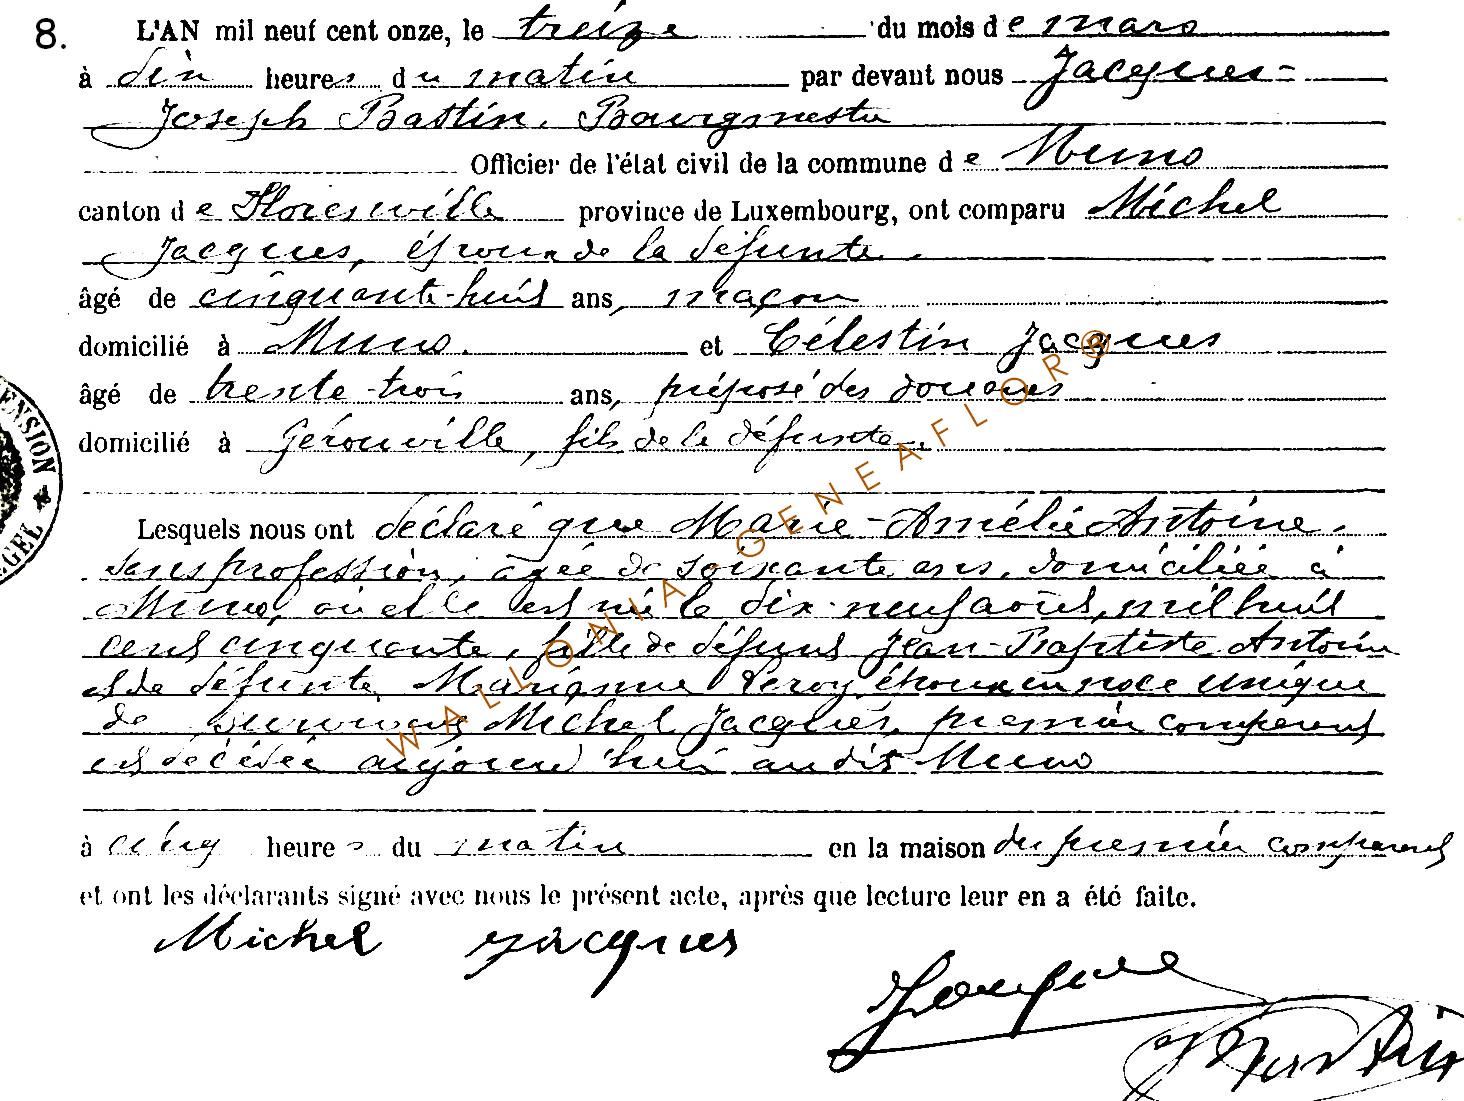 8. L'AN mil neuf cent onze, le treize du mois de mars
à dix heures du matin par devant nous Jacques-
Joseph Bastin, Bourgmestre
Officier de l'état civil de la commune de Muno
canton de Florenville province de Luxembourg, ont comparu Michel
Jacques, époux de la défunte.
âgé de cinquante-huit ans, maçon
domicilié à Muno. et Célestin Jacques
âgé de trente-trois ans, préposé des douanes
domicilié à Gérouville, fils de la défunte.
Lesquels nous ont déclaré que Marie-Amélie Antoine,
sans profession, âgée de soixante ans, domiciliée à
Muno, où elle est née le dix-neuf août, mil huit
cent cinquante, fille de défunt Jean-Baptiste Antoine
et de défunte Marianne Leroy, époux en noce unique
de survivant Michel Jacques, premier comparant
est décédée aujourd'hui audit Muno
à cinq heures du matin en la maison du premier comparant
et ont les déclarants signé avec nous le présent acte, après que lecture leur en a été faite.
Michel Jacques
Jacques
Bastin
ENSION
GEL
WALLONIA GENEAFLOR®